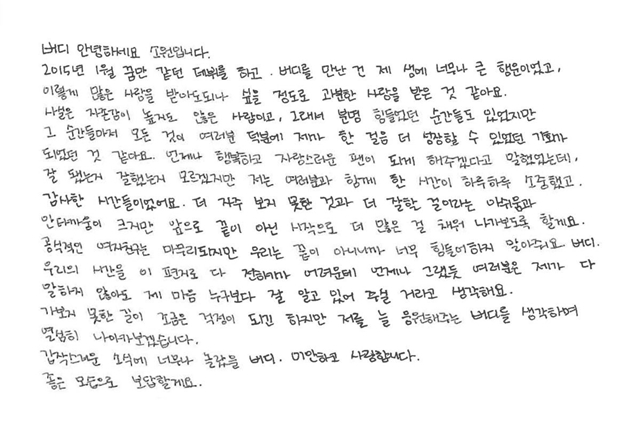 버디 안녕하세요 소원입니다.
2015년 1월 꿈만 같던 데뷔를 하고. 버디를 만난 건 제 생에 너무나 큰 행운이었고,
이렇게 많은 사랑을 받아도되나 싶을 정도로 과분한 사랑을 받은 것 같아요.
사실은 자존감이 높지도 않은 사람이고, 그래서 분명 힘들었던 순간들도 있었지만
그 순간들마저 모든 것이 여러분 덕분에 제가 한 걸음 더 성장할 수 있었던 기회가
되었던 것 같아요. 언제나 행복하고 자랑스러운 팬이 되게 해주겠다고 말했었는데,
잘 됐는지 잘했는지 모르겠지만 저는 여러분과 함께 한 시간이 하루하루 소중했고.
감사한 시간들이었어요. 더 자주 보지 못한 것과 더 잘할 걸이라는 아쉬움과
안타까움이 크지만 앞으로 끝이 아닌 시작으로 더 많은 걸 채워 나가보도록 할게요.
공식적인 여자친구는 마무리되지만 우리는 끝이 아니니까 너무 힘들어하지 말아주셔요 버디.
우리의 시간을 이 편지로 다 전하기가 어려운데 언제나 그랬듯 여러분은 제가 다
말하지 않아도 제 마음 누구보다 잘 알고 있어 주실 거라고 생각해요.
가보지 못한 길이 조금은 걱정이 되긴 하지만 저를 늘 응원해주는 버디를 생각하며
열심히 나아가보겠습니다.
갑작스러운 소식에 너무나 놀랐을 버디. 미안하고 사랑합니다.
좋은 모습으로 보답할게요.